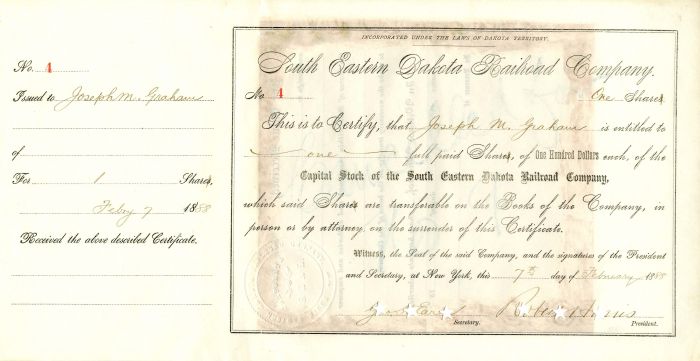 No. 4
Issued to Joseph M. Graham
of
For 1 Shares,
Feby 7 1888
Received the above described Certificate.
INCORPORATED UNDER THE LAWS OF DAKOTA TERRITORY.
South Eastern Dakota Railroad Company.
No 4 One Shares
This is to Certify, that Joseph M. Graham is entitled to
one full paid Shares, of One Hundred Dollars each, of the
Capital Stock of the South Eastern Dakota Railroad Company,
which said Shares are transferable on the Books of the Company, in
person or by attorney, on the surrender of this Certificate.
Witness, the Seal of the said Company, and the signatures of the President
and Secretary, at New York, this 7th day of February 1888
Secretary. President.